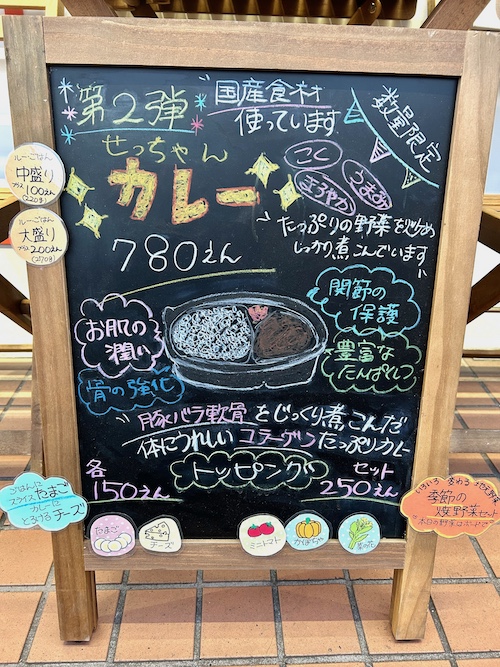 第2弾
国産食材
使っています
数量限定
せっちゃん
カレー
こく
うまみ
まろやか
780えん
たっぷりの野菜を炒め
じっかり煮こんでいます
お肌の
潤い
骨の強化
関節の
保護
豊富な
たんぱくしつ
豚バラ軟骨をじっくり煮こんだ
体にうれしいコラーゲンたっぷりカレー
トッピング
各
150えん
セット
250えん
ルー・ごはん
中盛り
プラス
100えん
(220g)
ルー・ごはん
大盛り
プラス
200えん
(270g)
ごはんに
スライスたまご
カレーに
とろけるチーズ
たまご
チーズ
ミニトマト
かぼちゃ
菜の花
季節の
焼野菜セット